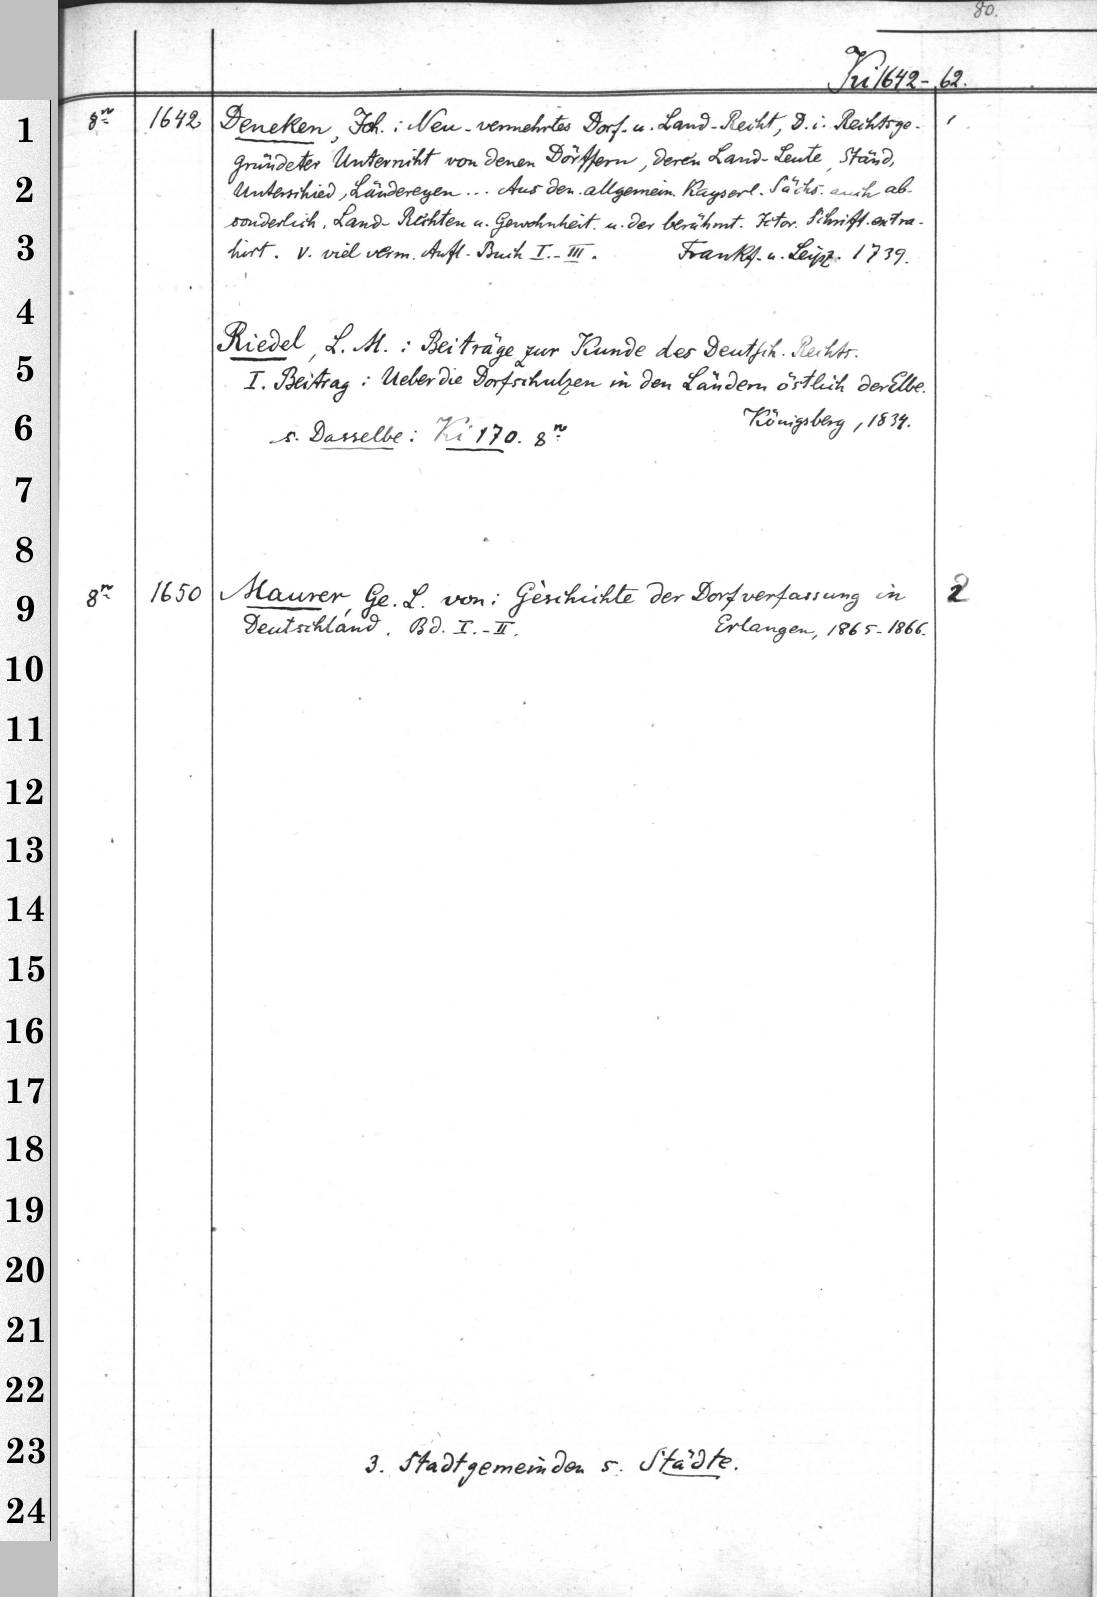 80.
Ki 1642-62.
1
2
3
4
5
6
7
8
9
10
11
12
13
14
15
16
17
18
19
20
21
22
23
24
8º 1642 Deneken, Joh.: Neu-vermehrtes Dorf- u. Land-Recht, D. i. Rechtsge- 1
gründeter Unterricht von denen Dörffern, deren Land-Leute, Ständ,
Unterschied, Ländereyen ... Aus den allgemein. Kayserl. Sächs. auch ab-
sonderlich. Land-Rechten u. Gewohnheit. u. der berühmt. Jctor. Schrifft. extra-
hirt. v. viel verm. Aufl. Buch I.-III. Frankf. u. Leipz. 1739.
Riedel, L. M.: Beiträge zur Kunde des Deutsch. Rechts.
I. Beitrag: Ueber die Dorfschulzen in den Ländern östlich der Elbe.
Königsberg, 1834.
s. Dasselbe: Ki 170. 8º
8º 1650 Maurer, Ge. L. von: Geschichte der Dorfverfassung in 2
Deutschland. Bd. I.-II. Erlangen, 1865-1866.
3. Stadtgemeinden s. Städte.